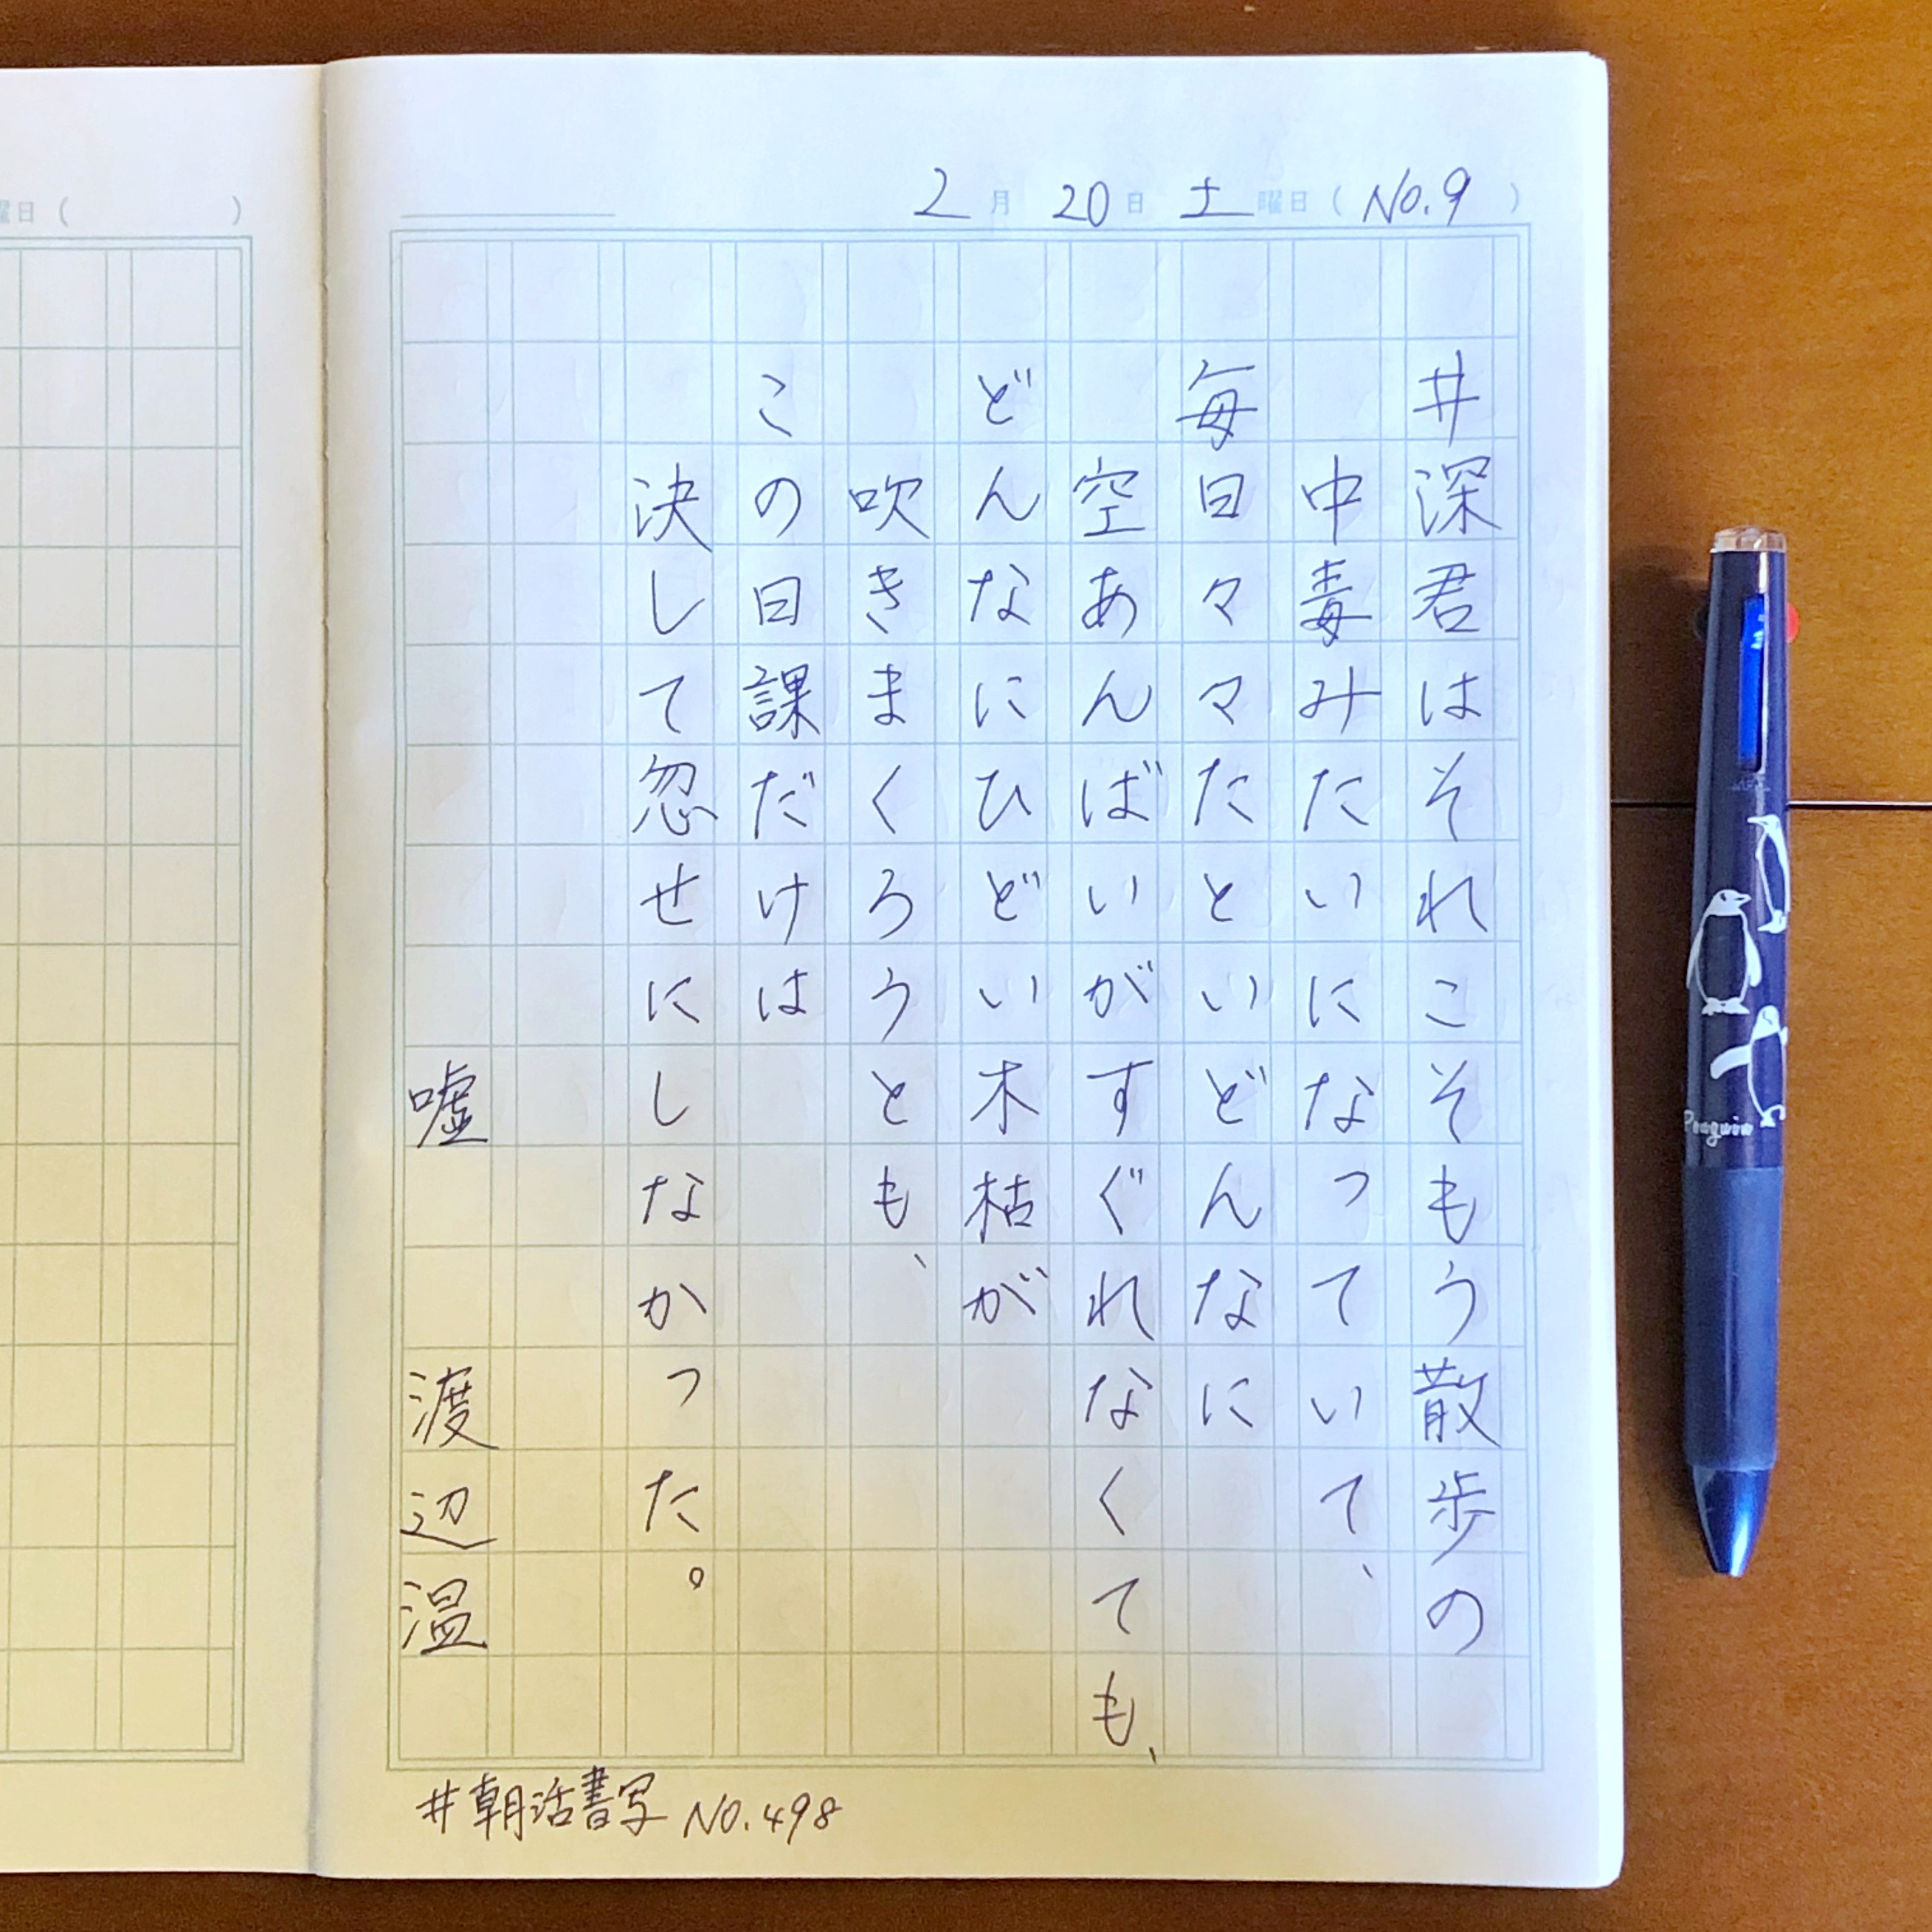 曜日（　　　）
2月20日土曜日（No.9）
井深君はそれこそもう散歩の
中毒みたいになっていて、
毎日々々たといどんなに
空あんばいがすぐれなくても、
どんなにひどい木枯が
吹きまくろうとも、
この日課だけは
決して忽せにしなかった。
嘘　渡辺温
#朝活書写 No.498
Penguin